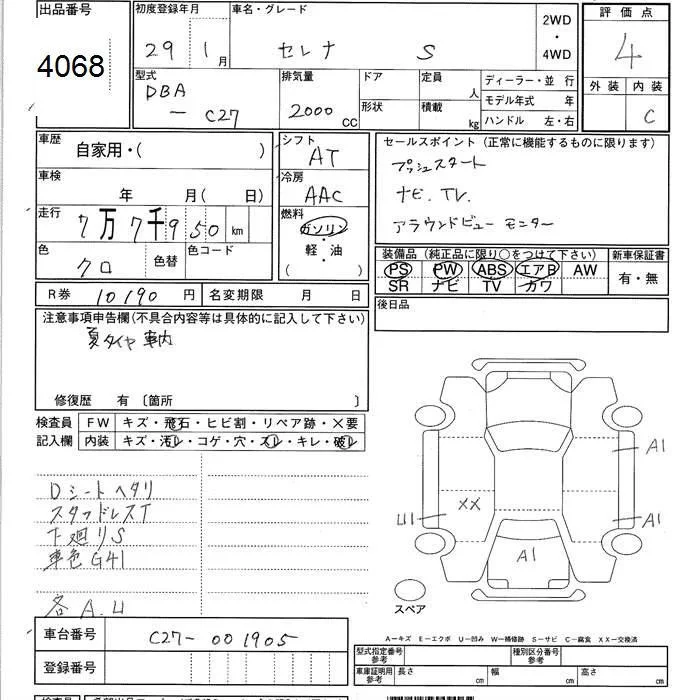 出品番号 初度登録年月 車名・グレード 2WD・4WD 評価点
4068 29 1月 セレナ S 4
型式 排気量 ドア 定員 人 ディーラー・並行 外装 内装
DBA－C27 2000cc 形状 積載 kg モデル年式 年 C
ハンドル 左・右
車歴 自家用・( ) シフト AT セールスポイント (正常に機能するものに限ります)
車検 年 月(日) 冷房 AAC プッシュスタート
ナビ. TV.
走行 7万7千950km 燃料 ガソリン・軽・油 ( ) アラウンドビュー モニター
色 クロ 色替 色コード
装備品 (純正品に限り○をつけて下さい) 新車保証書
PS PW ABS エアB AW 有・無
SR ナビ TV カワ
R券 10190円 名変期限 月 日 後日品
注意事項申告欄(不具合内容等は具体的に記入して下さい)
夏タイヤ 車内
修復歴 有 〔箇所 〕
検査員 FW キズ・飛石・ヒビ割・リペア跡・×要
記入欄 内装 キズ・汚レ・コゲ・穴・スレ・キレ・破レ
Dシートヘタリ
スタッドレスT
下廻りS
車色G41
各A.U
A1
XX
U1
A1
A1
スペア
A－キズ E－エクボ U－凹み W－補修跡 S－サビ C－腐食 XX－交換済
車台番号 C27-001905
型式指定番号 参考 種別区分番号 参考
登録番号
車庫証明用 参考 長さ cm 幅 cm 高さ cm